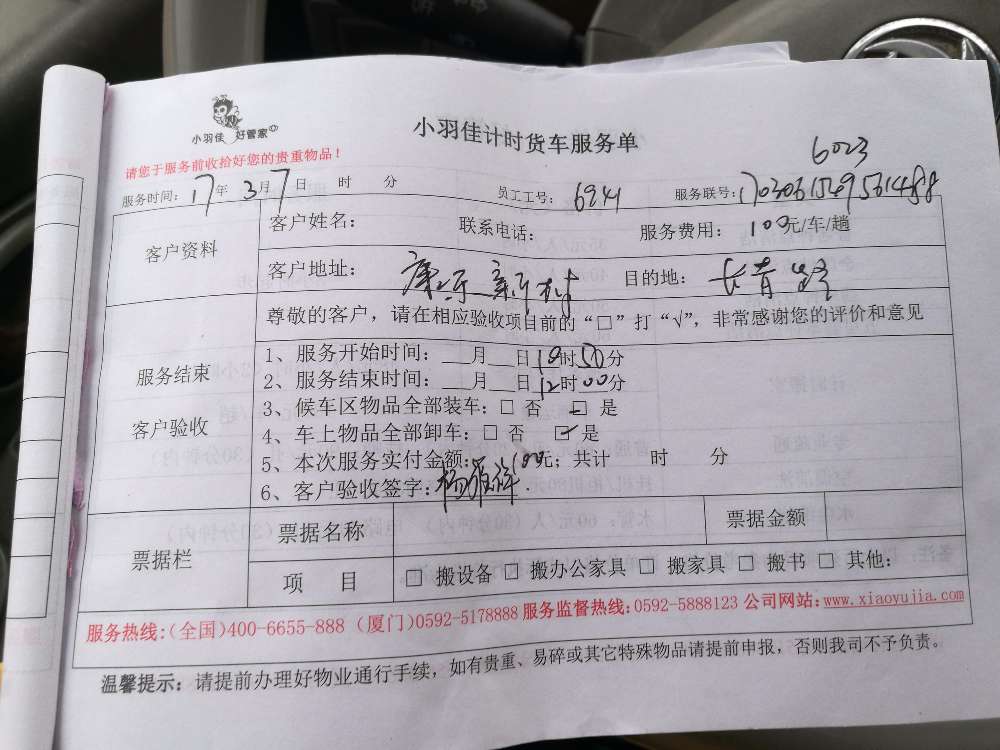 小羽佳 好管家
小羽佳计时货车服务单
请您于服务前收拾好您的贵重物品！
6023
服务时间：17年 3月7日 时 分 员工工号：6241 服务联号：
客户资料
客户姓名： 联系电话： 服务费用：100元/车/趟
客户地址： 康乐新村 目的地： 长青路
服务结束
客户验收
尊敬的客户，请在相应验收项目前的“□”打“√”，非常感谢您的评价和意见
1、服务开始时间：__月__日10时50分
2、服务结束时间：__月__日12时00分
3、候车区物品全部装车：□ 否 □ 是
4、车上物品全部卸车：□ 否 ☑ 是
5、本次服务实付金额：100元；共计 时 分
6、客户验收签字：
票据栏
票据名称 票据金额
项 目 □ 搬设备 □ 搬办公家具 □ 搬家具 □ 搬书 □ 其他：
服务热线：(全国)400-6655-888 (厦门)0592-5178888 服务监督热线：0592-5888123 公司网站：www.xiaoyujia.com
温馨提示：请提前办理好物业通行手续，如有贵重、易碎或其它特殊物品请提前申报，否则我司不予负责。